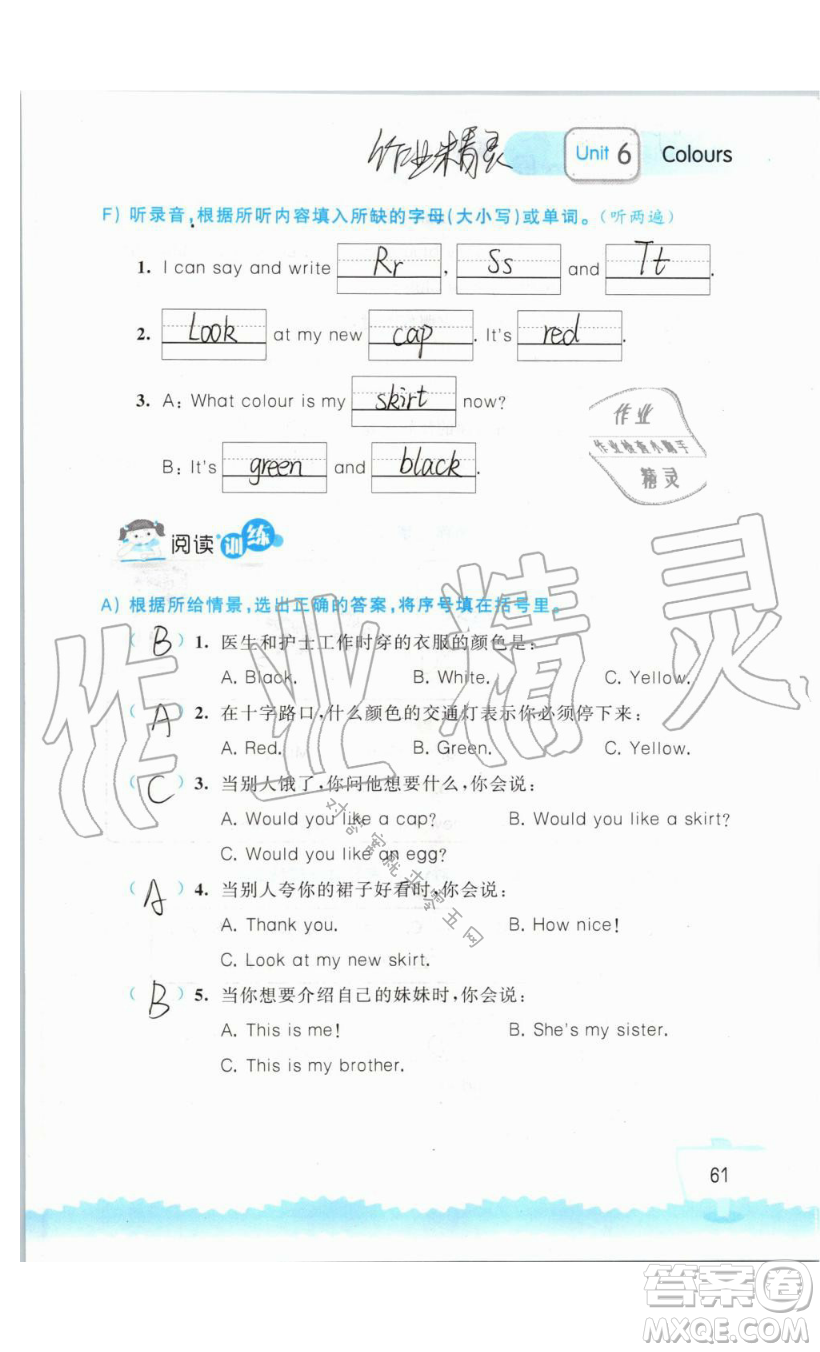 作业精灵 Unit 6 Colours
F) 听录音,根据所听内容填入所缺的字母(大小写)或单词。(听两遍)
1. I can say and write Rr, Ss and Tt.
2. Look at my new cap. It's red.
3. A: What colour is my skirt now?
B: It's green and black.
作业
作业检查小助手
精灵
阅读训练
A) 根据所给情景,选出正确的答案,将序号填在括号里。
( B ) 1. 医生和护士工作时穿的衣服的颜色是:
A. Black. B. White. C. Yellow.
( A ) 2. 在十字路口,什么颜色的交通灯表示你必须停下来:
A. Red. B. Green. C. Yellow.
( C ) 3. 当别人饿了,你问他想要什么,你会说:
A. Would you like a cap? B. Would you like a skirt?
C. Would you like an egg?
( A ) 4. 当别人夸你的裙子好看时,你会说:
A. Thank you. B. How nice!
C. Look at my new skirt.
( B ) 5. 当你想要介绍自己的妹妹时,你会说:
A. This is me! B. She's my sister.
C. This is my brother.
作业精灵
对答案就去零五网
61
答案圈
MXQE.COM